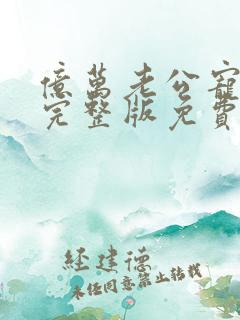 億萬老公寵
完整版免費
經建德
未任同意禁止转载